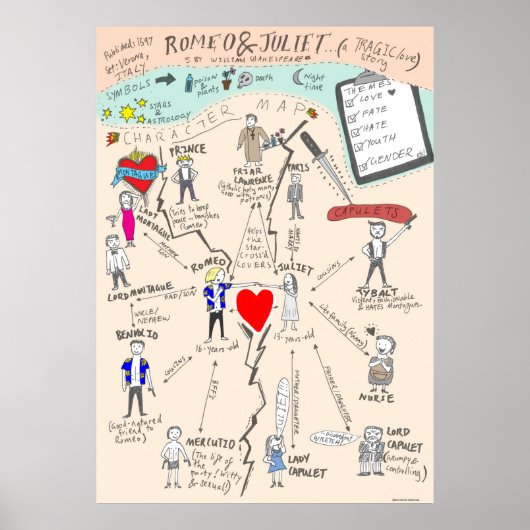 Published: 1597
Set: Verona,
ITALY
ROMEO & JULIET...(a TRAGIC love)
story
BY WILLIAM SHAKESPEARE
SYMBOLS
poison
& plants
Death
Night
time
STARS &
ASTROLOGY
THEMES
LOVE
FATE
HATE
YOUTH
GENDER etc
CHARACTER MAP
MONTAGUE
PRINCE
(Tries to keep
peace - banishes
Romeo)
FRIAR
LAWRENCE
(Catholic holy man,
with
potions)
PARIS
WANTS TO
MARRY
CAPULETS
LADY
MONTAGUE
MOTHER
SON
Helps
the
star-
cross'd
LOVERS
ROMEO
JULIET
COUSINS
TYBALT
Violent, fashionable
& HATES Montagues.
LORD MONTAGUE
DAD/SON
UNCLE/
NEPHEW
BENVOLIO
COUSINS
16-years-old
13-years-old
Like family (Nanny)
NURSE
BFF'S
MOTHER/DAUGHTER
FATHER/DAUGHTER
(Good-natured
friend to
Romeo)
MERCUTIO
(The life of
the party! Witty
& sexual!)
JULIET!
LADY
CAPULET
Disobedient
WRETCH!
LORD
CAPULET
(Grumpy &
controlling)